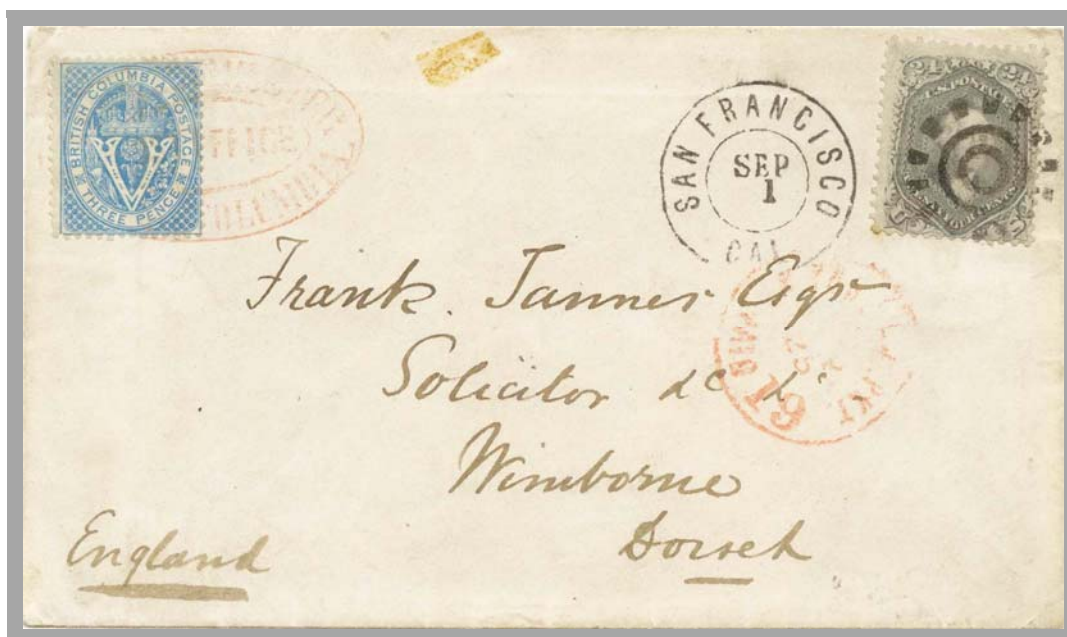 BRITISH COLUMBIA POSTAGE
THREE PENCE
SAN FRANCISCO
SEP
1
CAL
24 24
U.S. POSTAGE
Frank. Tanner Esqr
Solicitor &c &c
Wimborne
Dorset
England
19
PKT